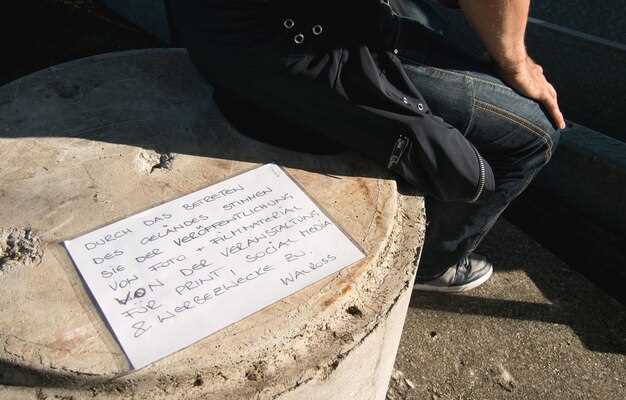 DURCH DAS BETRETEN
DES GELÄNDES STIMMEN
SIE DER VERÖFFENTLICHUNG
VON FOTO + FILMMATERIAL
VON DER VERANSTALTUNG
FÜR PRINT / SOCIAL MEDIA
& WERBEZWECKE ZU.
WALROSS